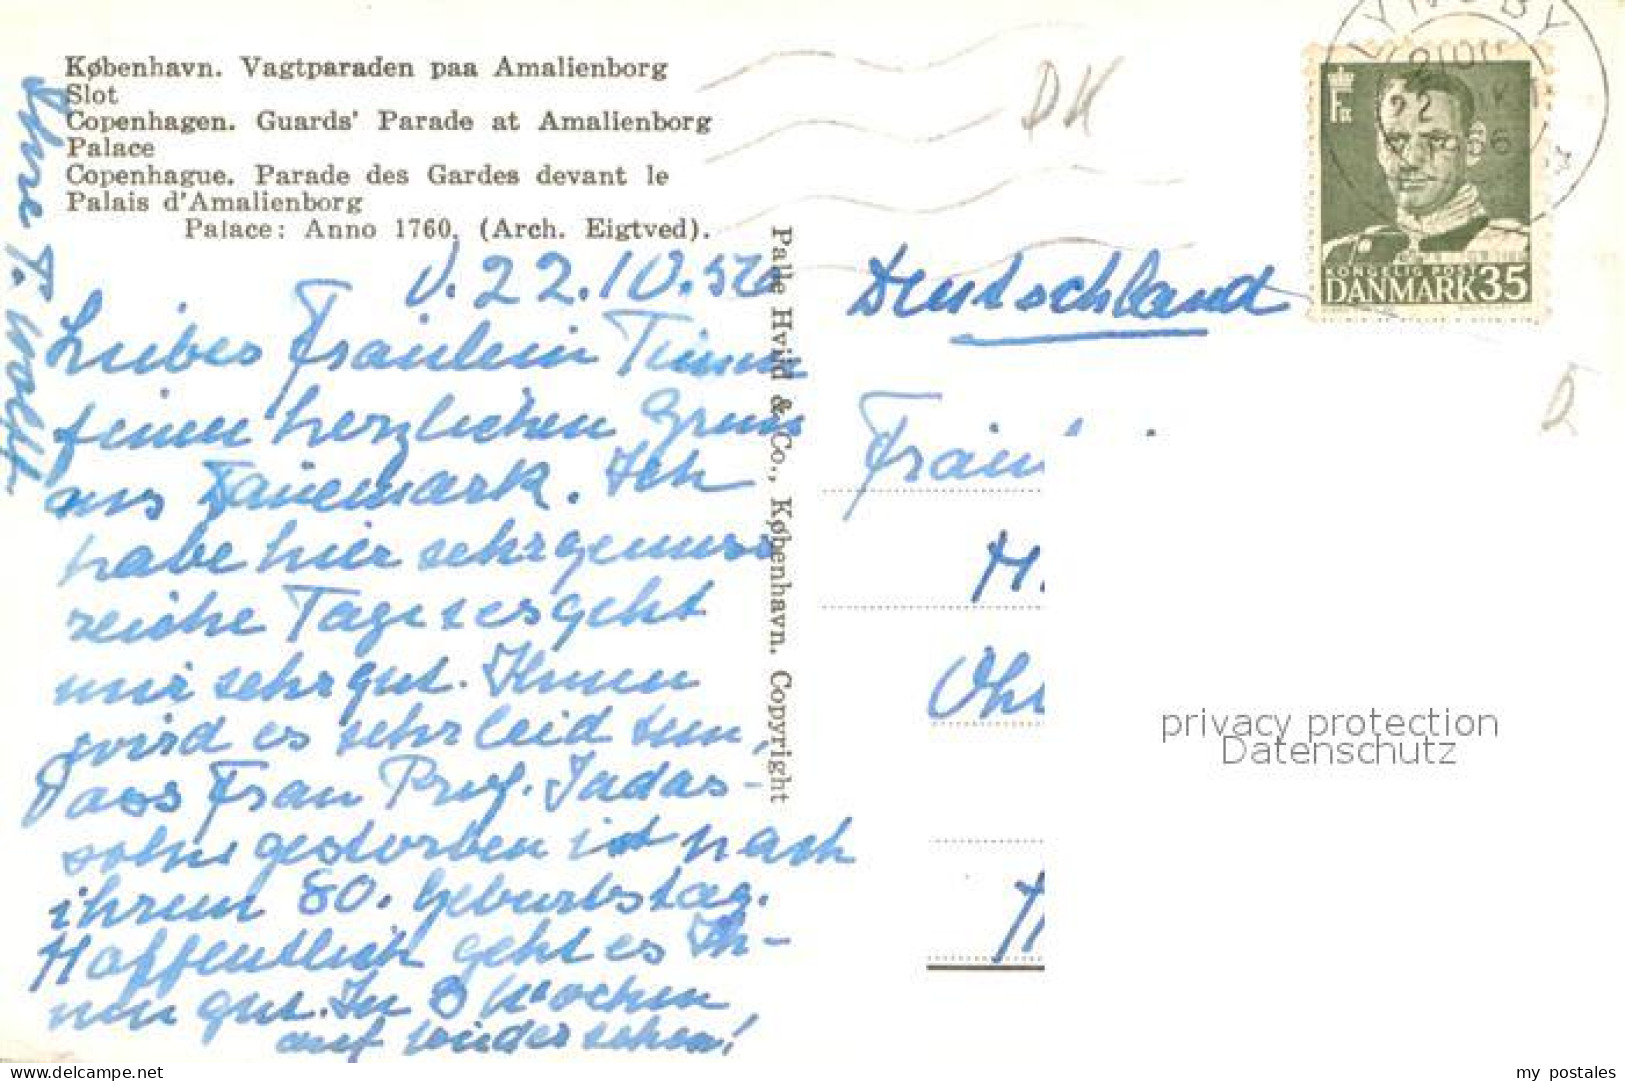 København. Vagtparaden paa Amalienborg
Slot
Copenhagen. Guards' Parade at Amalienborg
Palace
Copenhague. Parade des Gardes devant le
Palais d'Amalienborg
Palace: Anno 1760. (Arch. Eigtved).
22.10.56
Liebes Fräulein Timm
einen herzlichen Gruss
aus Dänemark. Ich
habe hier sehr genuss
reiche Tage es geht
mir sehr gut. Ihnen
wird es sehr leid tun,
dass Frau Prof. Jadas-
sohn gestorben ist nach
ihrem 80. Geburtstag.
Hoffentlich geht es Ih-
nen gut. In 3 Wochen
auf Wiedersehen!
Ihre T. Wolff
Palle Hvid & Co., København. Copyright
DK
LYNGBY
22
DANMARK 35
Deutschland
Fräul
H.
D
privacy protection
Datenschutz
my_postales
delcampe.net